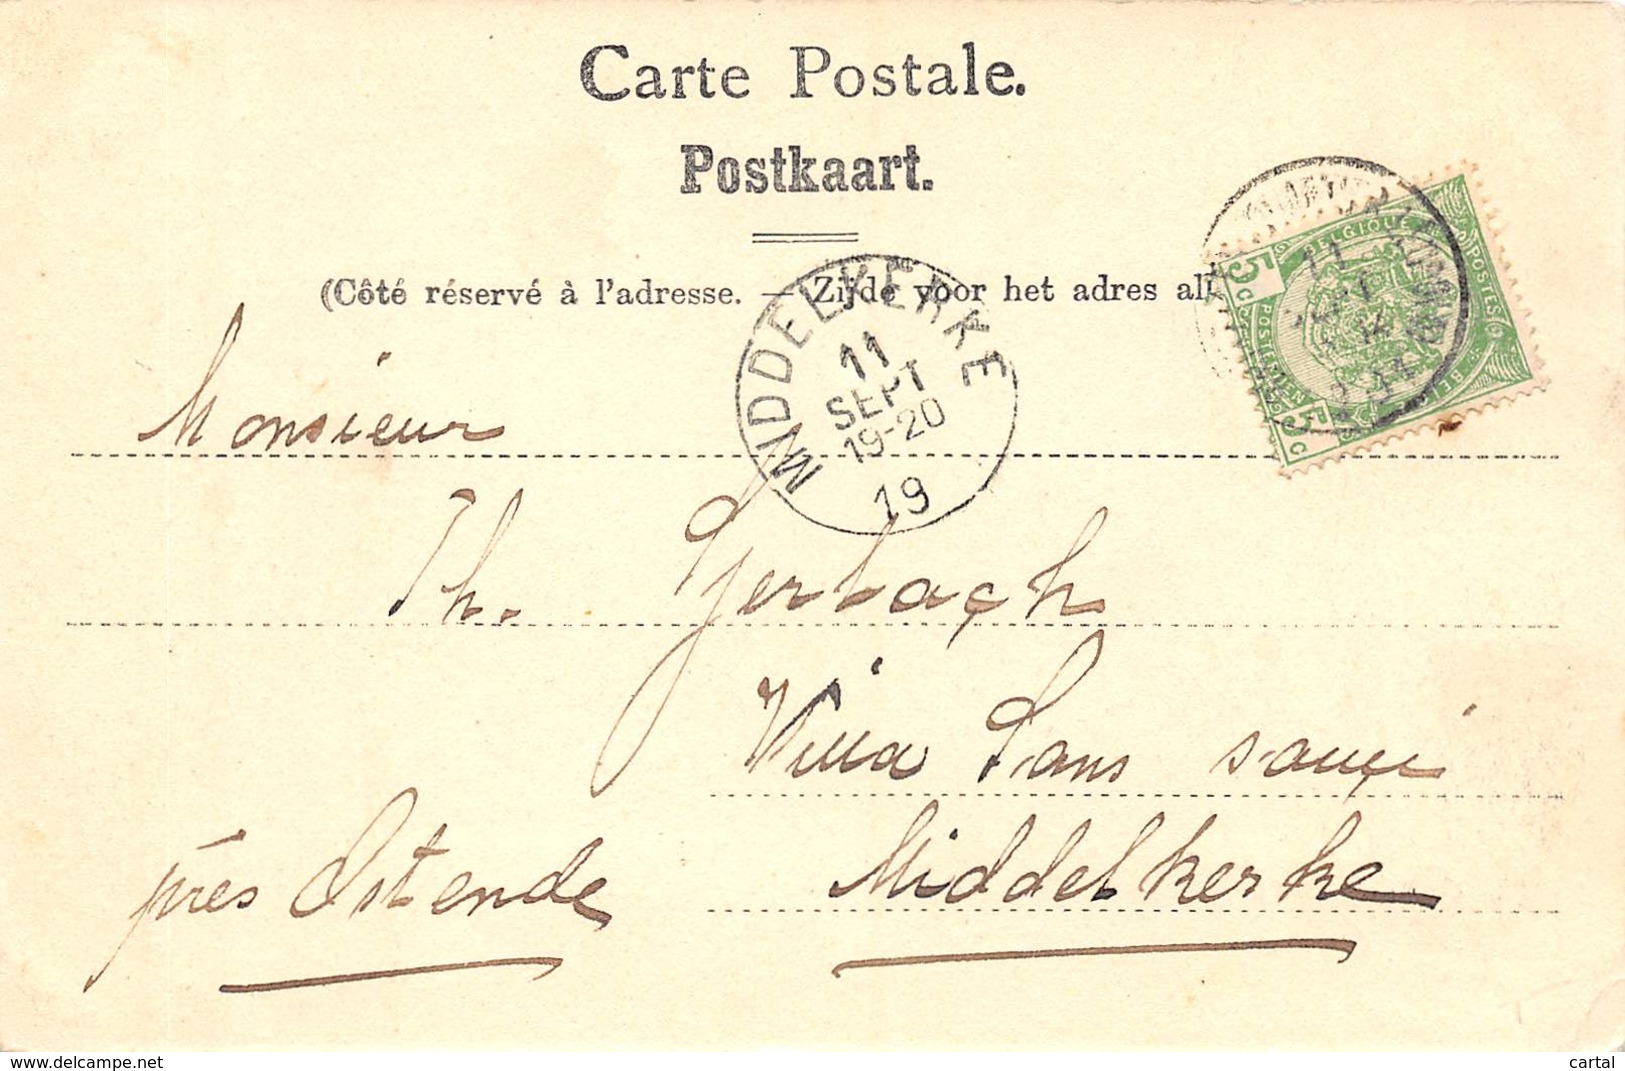 Carte Postale.
Postkaart.
(Côté réservé à l'adresse. — Zijde voor het adres all
MIDDELKERKE
11
SEPT
19-20
19
BELGIQUE
POSTES
5c
5c
11
Monsieur
Th. Gerbach
Villa Sans souçi
Middelkerke
près Ostende
www.delcampe.net
cartal